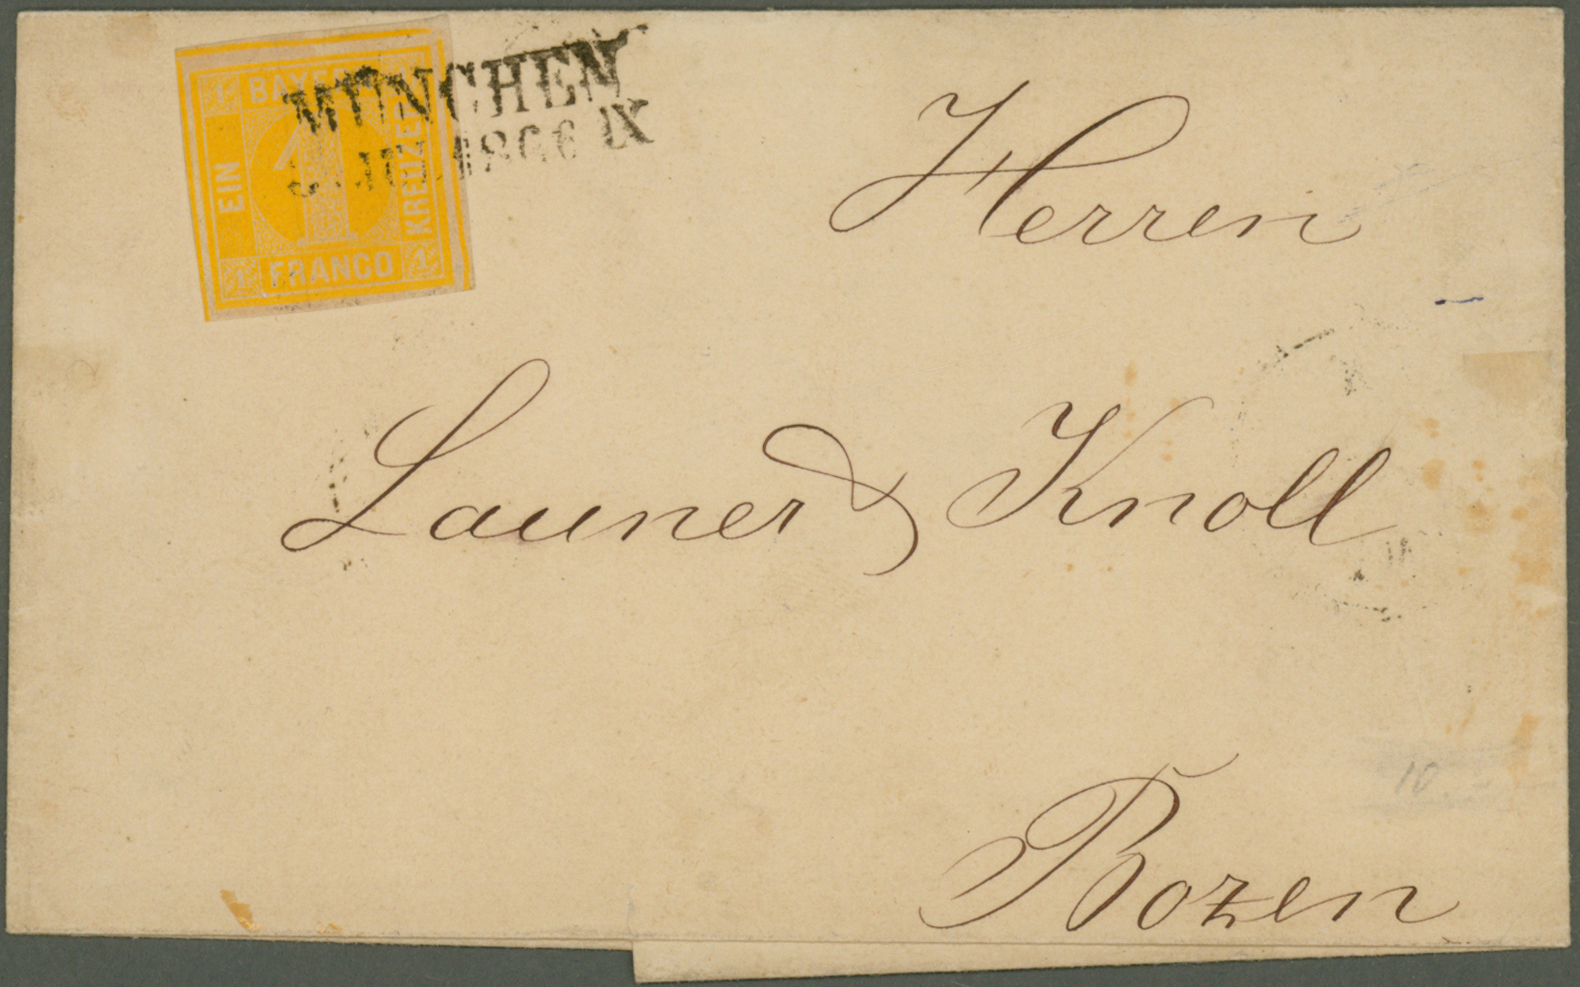 1 BAYERN 1
EIN
1
KREUZER
1 FRANCO 1
MÜNCHEN
JUL 1866 IX
Herren
Launer & Knoll
10
Bozen